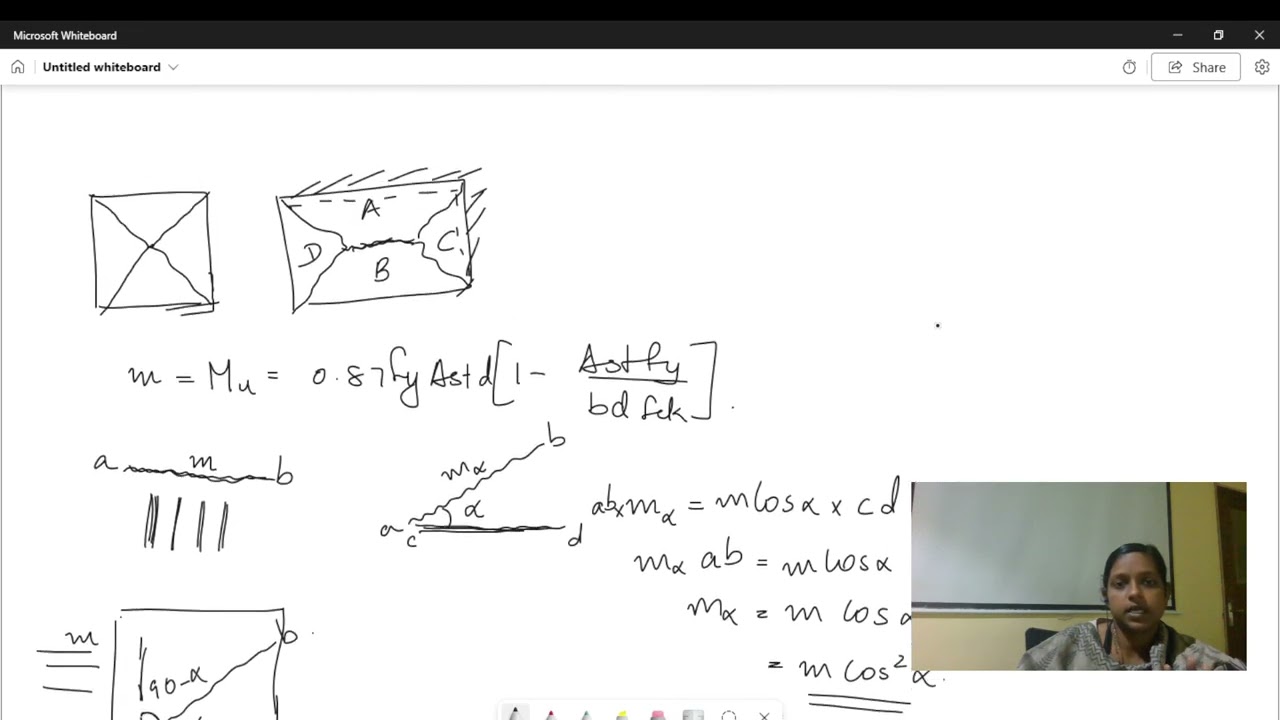 Microsoft Whiteboard
Untitled whiteboard
Share
A
D
C
B
m = Mu = 0.87fy Ast d[1 - Ast fy / bd fck].
a m b
mα b
α
a c d
ab x mα = m cosα x cd
mα ab = m cosα
mα = m cos
= m cos²α.
m
b
90-α